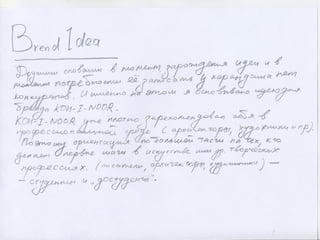 Brend Idea
Другими словами в момент зарождения идеи и в
момент потребности её записать у карандаша нет
конкурентов. И именно на этом я основываю идеологию
бренда KOH-I-NOOR.
KOH-I-NOOR уже плотно зарекомендовал себя в
профессиональной среде (архитекторы, художники и пр).
Поэтому ориентация по большей части на тех, кто
делает первые шаги в искусстве или др. творческих
профессиях. (писатели, архитекторы, художники) —
— студенты и "достуденты".